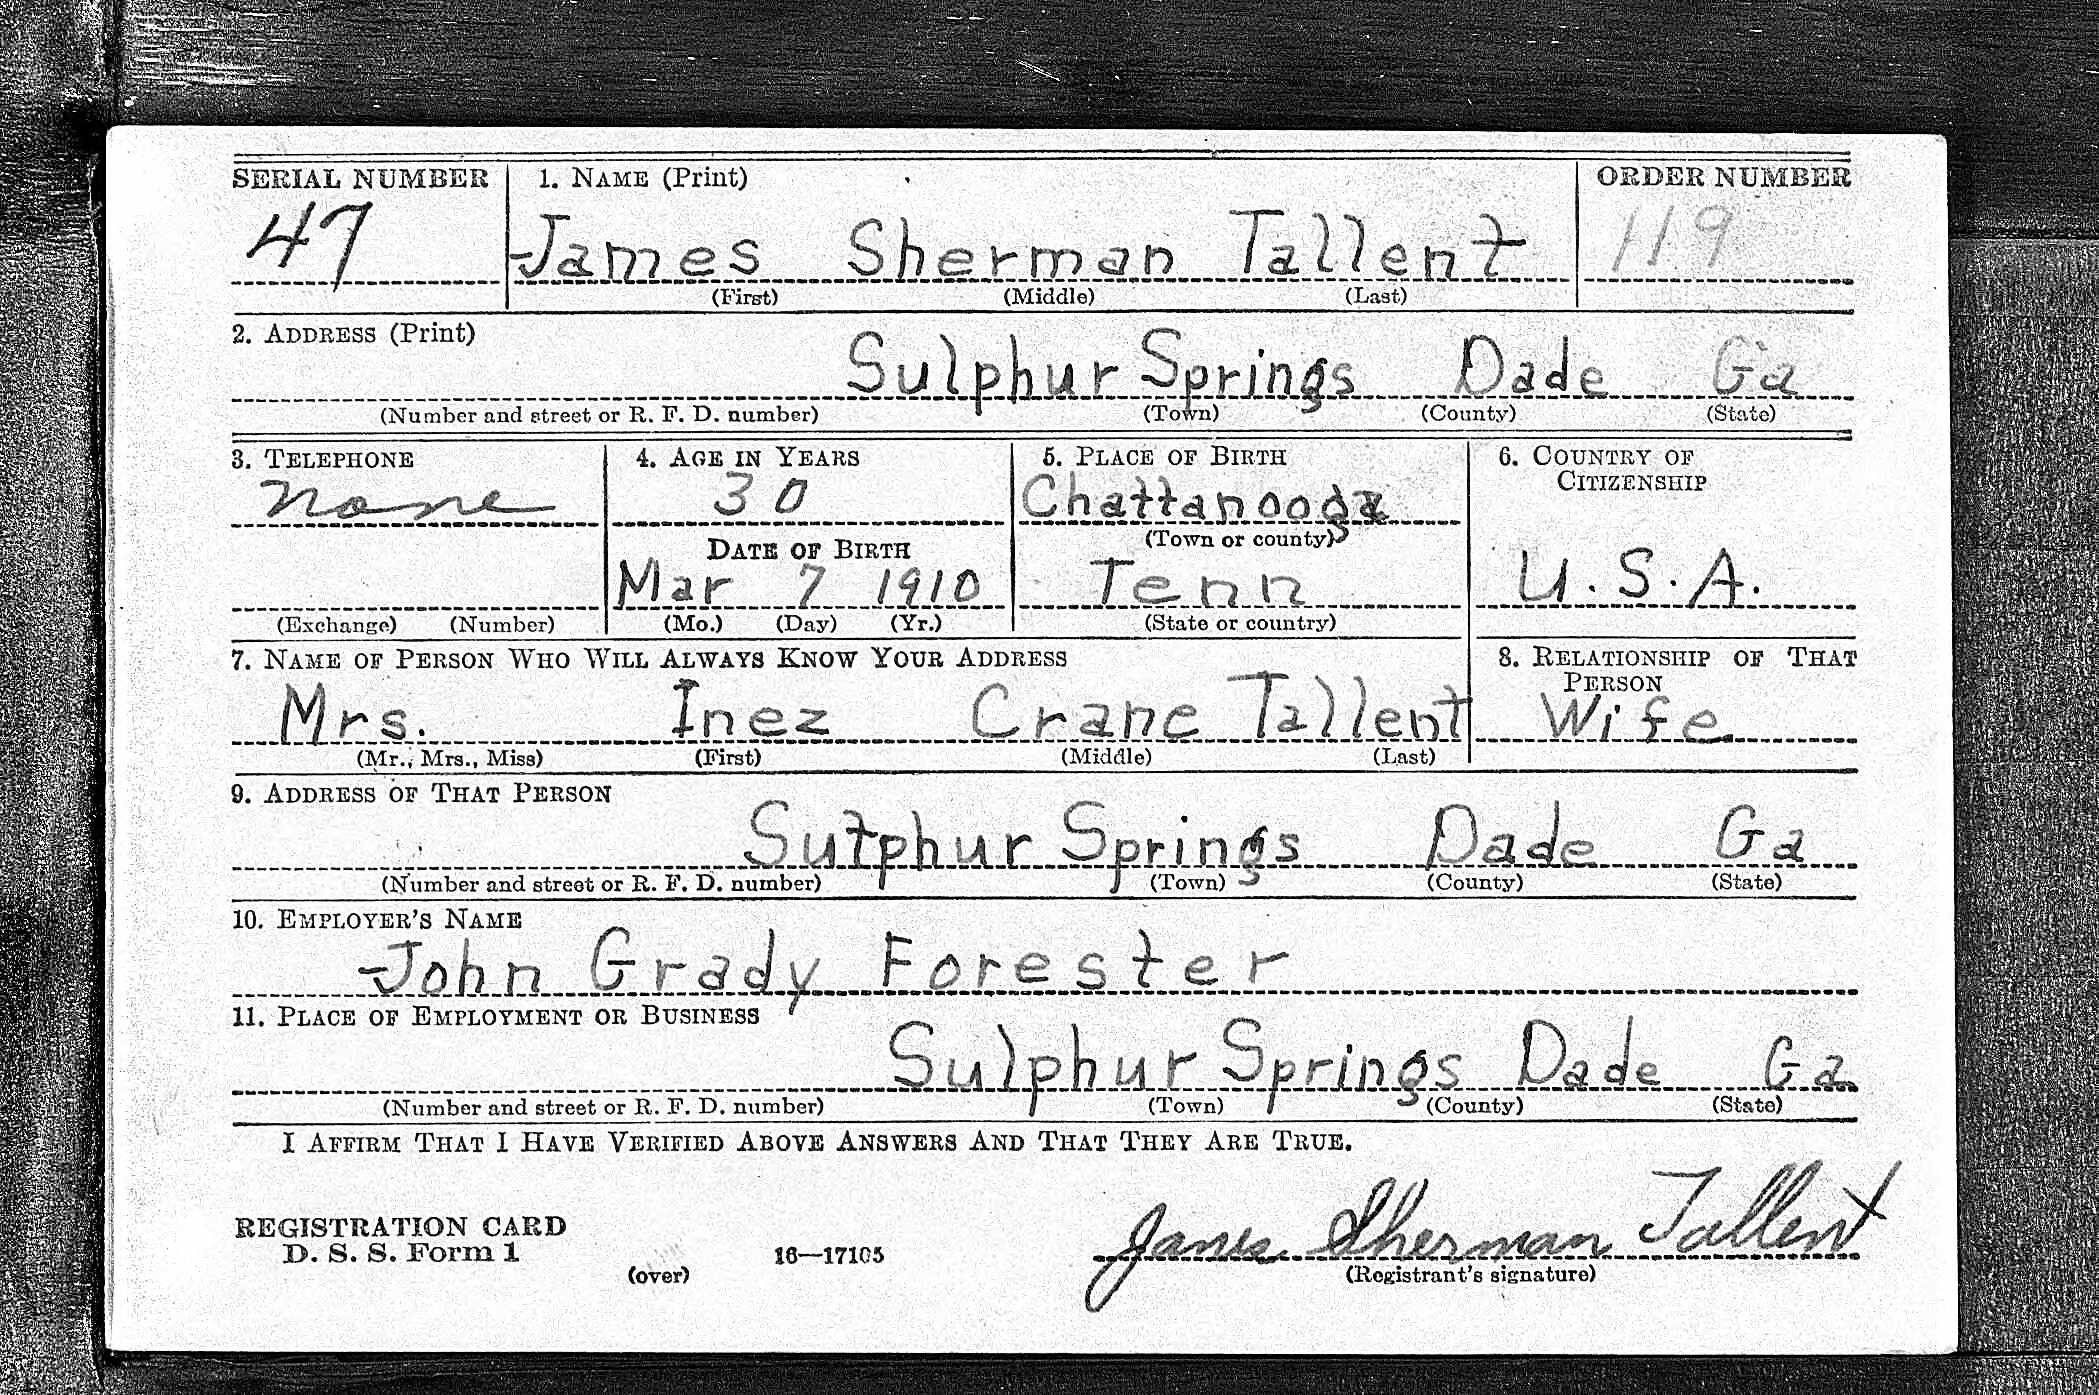 SERIAL NUMBER 1. NAME (Print) ORDER NUMBER
47 James Sherman Tallent 119
(First) (Middle) (Last)
2. ADDRESS (Print)
Sulphur Springs Dade Ga
(Number and street or R. F. D. number) (Town) (County) (State)
3. TELEPHONE 4. AGE IN YEARS 5. PLACE OF BIRTH 6. COUNTRY OF
CITIZENSHIP
none 30 Chattanooga
(Town or county)
DATE OF BIRTH
Mar 7 1910 Tenn U.S.A.
(Exchange) (Number) (Mo.) (Day) (Yr.) (State or country)
7. NAME OF PERSON WHO WILL ALWAYS KNOW YOUR ADDRESS 8. RELATIONSHIP OF THAT
PERSON
Mrs. Inez Crane Tallent Wife
(Mr., Mrs., Miss) (First) (Middle) (Last)
9. ADDRESS OF THAT PERSON
Sulphur Springs Dade Ga
(Number and street or R. F. D. number) (Town) (County) (State)
10. EMPLOYER'S NAME
John Grady Forester
11. PLACE OF EMPLOYMENT OR BUSINESS
Sulphur Springs Dade Ga
(Number and street or R. F. D. number) (Town) (County) (State)
I AFFIRM THAT I HAVE VERIFIED ABOVE ANSWERS AND THAT THEY ARE TRUE.
James Sherman Tallent
REGISTRATION CARD
D. S. S. Form 1 16—17105
(over) (Registrant's signature)